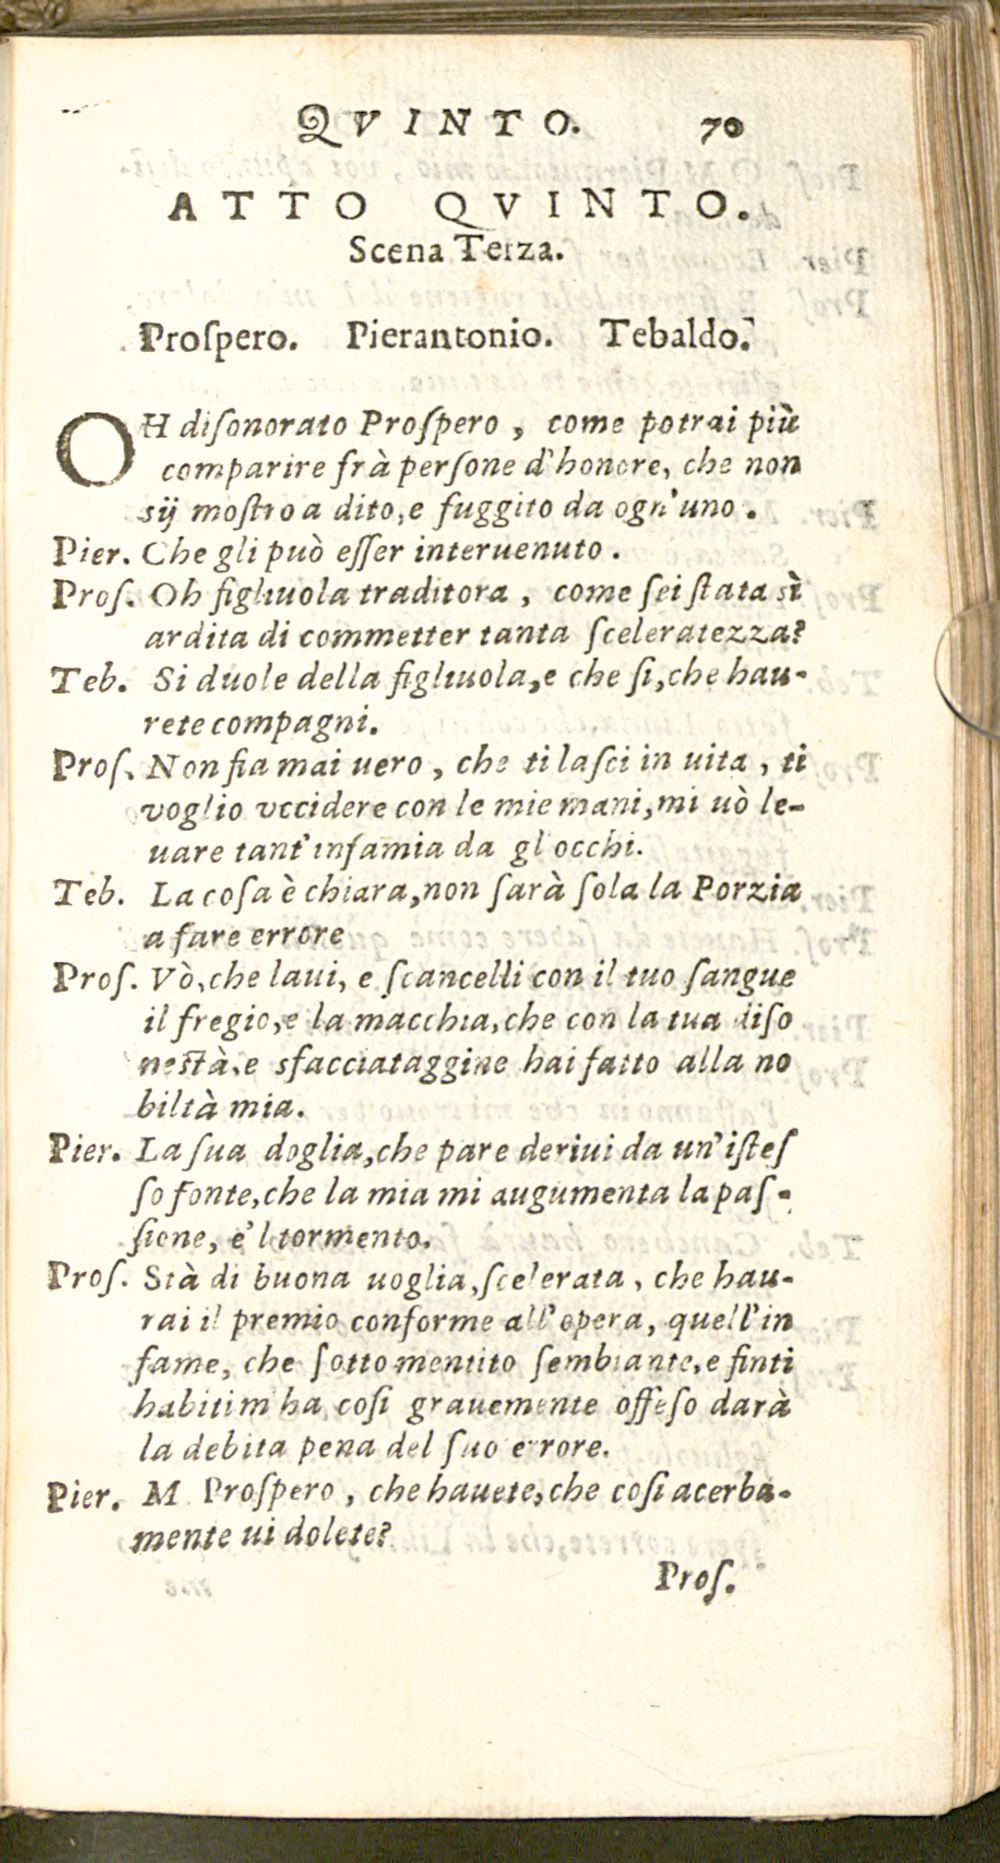 QVINTO. 70
ATTO QVINTO.
Scena Terza.
Proſpero. Pierantonio. Tebaldo.
OH diſonorato Proſpero, come potrai più
comparire frà perſone d'honore, che non
sij moſtro a dito, e fuggito da ogn'uno.
Pier. Che gli può eſſer interuenuto.
Proſ. Oh figliuola traditora, come ſei ſtata sì
ardita di commetter tanta ſceleratezza?
Teb. Si duole della figliuola, e che ſi, che hau-
rete compagni.
Proſ. Non fia mai uero, che ti laſci in uita, ti
voglio vccidere con le mie mani, mi uò le-
uare tant'infamia da gl'occhi.
Teb. La coſa è chiara, non ſarà ſola la Porzia
a fare errore
Proſ. Vò, che laui, e ſcancelli con il tuo ſangue
il fregio, e la macchia, che con la tua diſo
neſtà, e sfacciataggine hai fatto alla no
biltà mia.
Pier. La ſua doglia, che pare deriui da un'iſteſ
ſo fonte, che la mia mi augumenta la paſ-
ſione, e'l tormento.
Proſ. Stà di buona uoglia, ſcelerata, che hau-
rai il premio conforme all'opera, quell'in
fame, che ſotto mentito ſembiante, e finti
habiti m'ha coſi grauemente offeſo darà
la debita pena del ſuo errore.
Pier. M Proſpero, che hauete, che coſi acerba-
mente ui dolete?
Proſ.